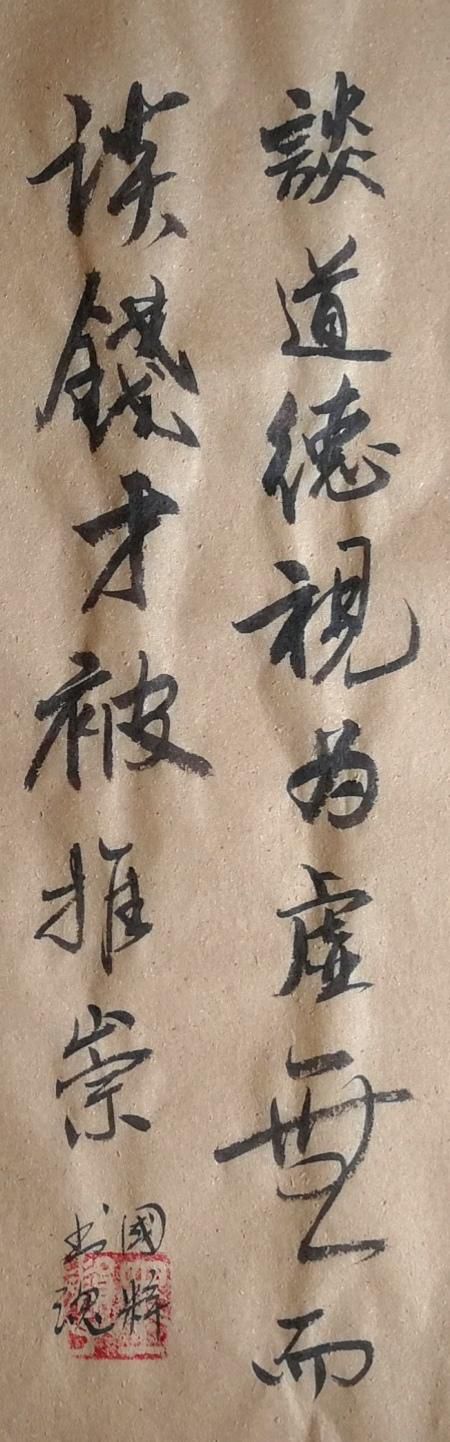 談道德視为虚無而
談錢才被推崇
國粹
书魂